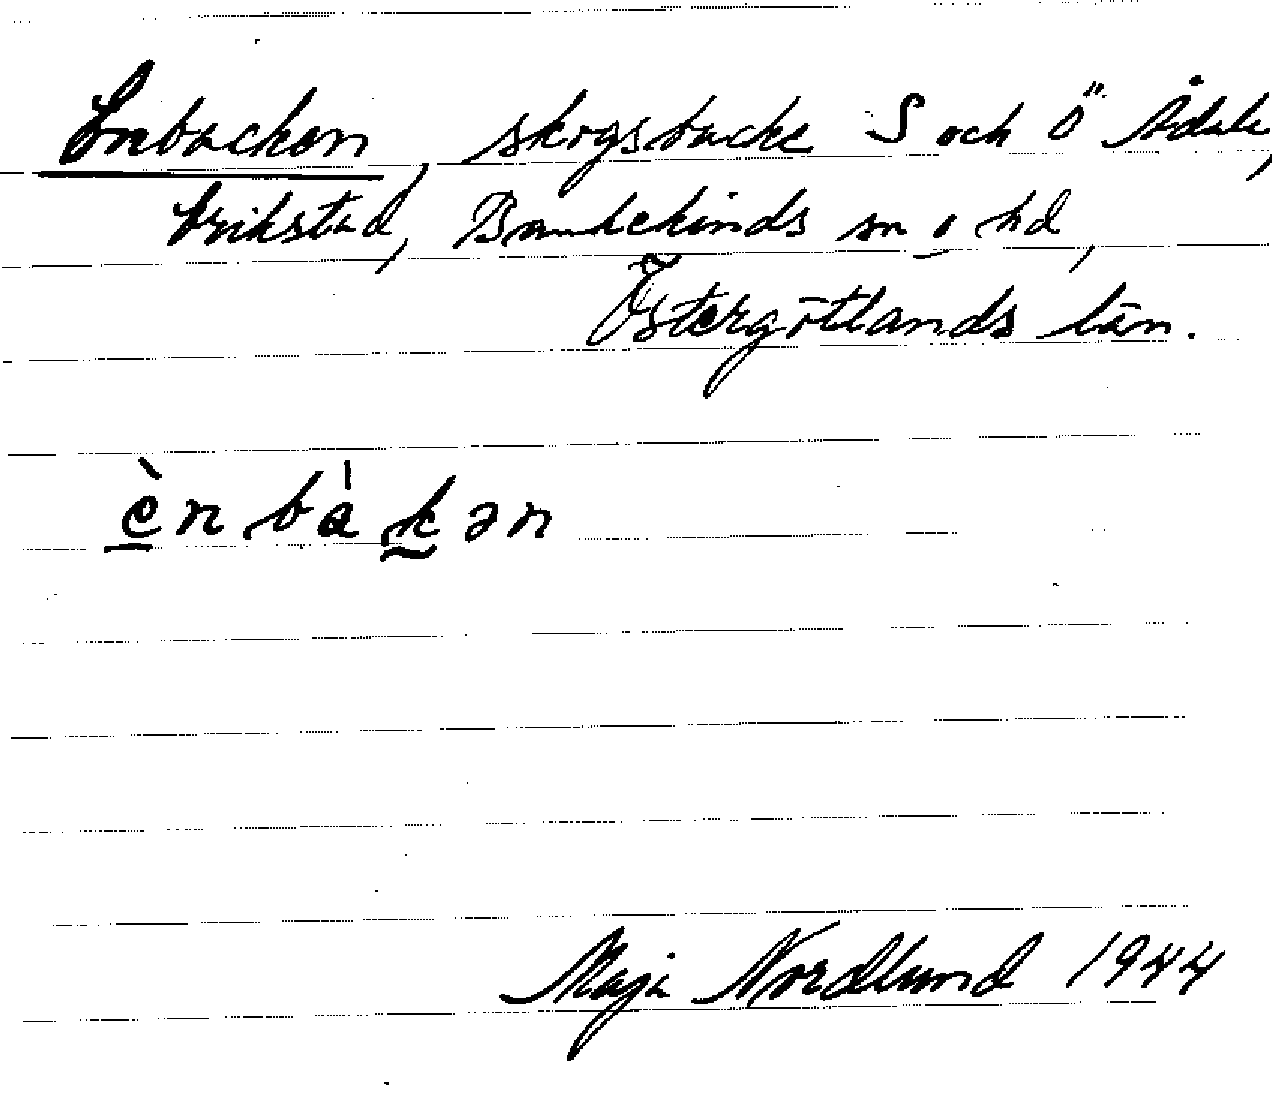 Enbacken, skogsbacke S och Ö Ådala,
Erikstad, Bankekinds sn o hd,
Östergötlands län.
è̱nbàk̰ən
Maja Nordlund 1944